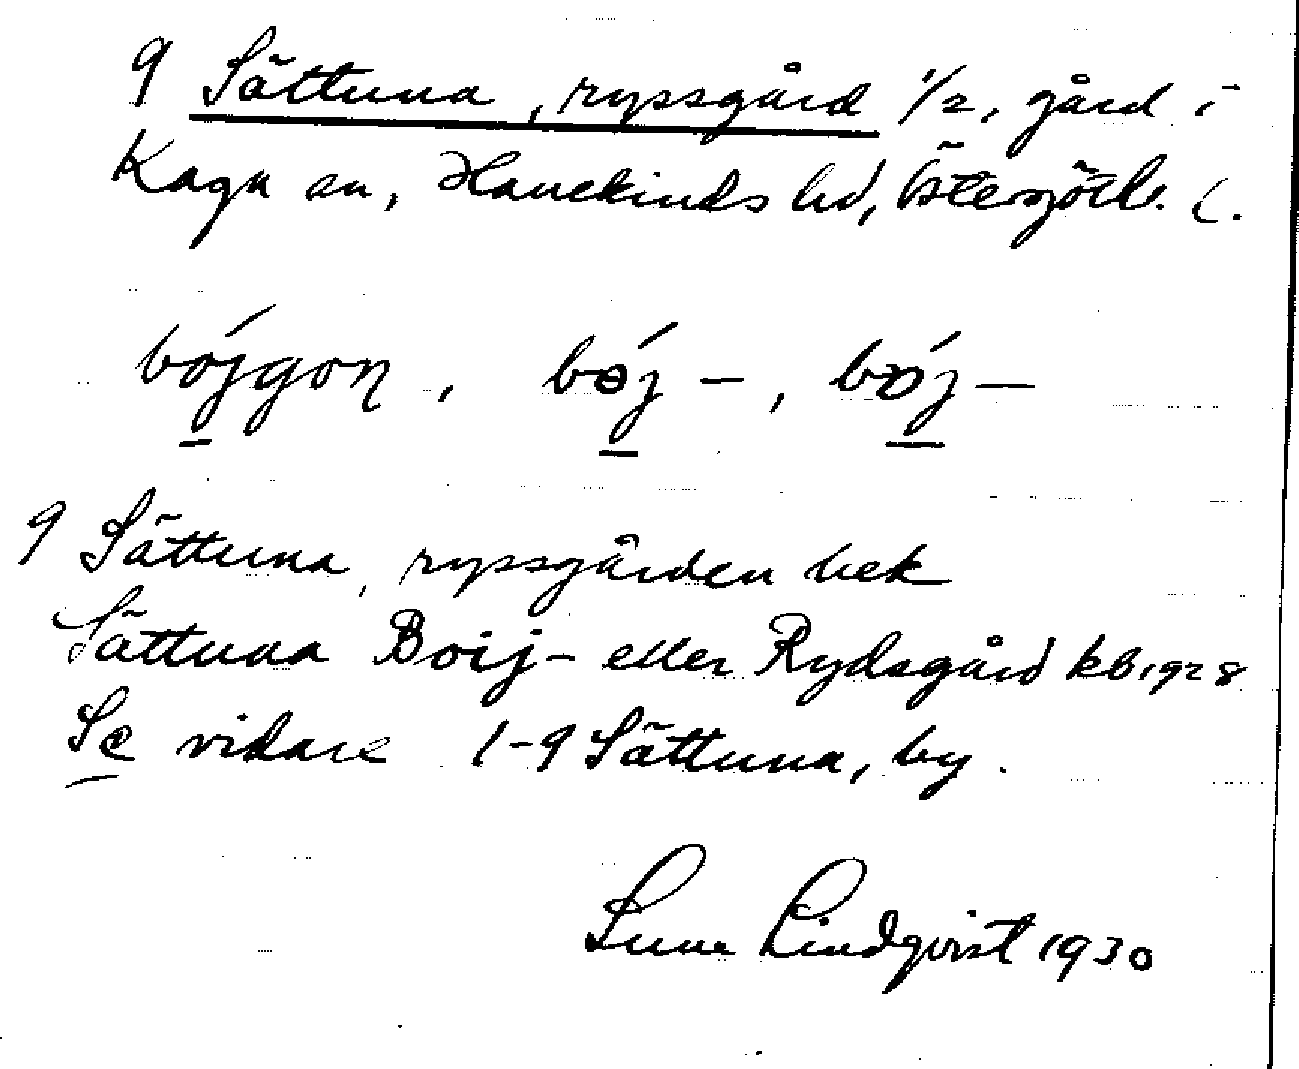 9 Sättuna, ryssgård 1/2, gård i
Kaga sn, Hanekinds hd, Östergötl. l.
bójgon, bój –, bój –
9 Sättuna, ryssgården bek
Sättuna Boij- eller Rydsgård kb 1928
Se vidare 1-9 Sättuna, by.
Sune Lindqvist 1930